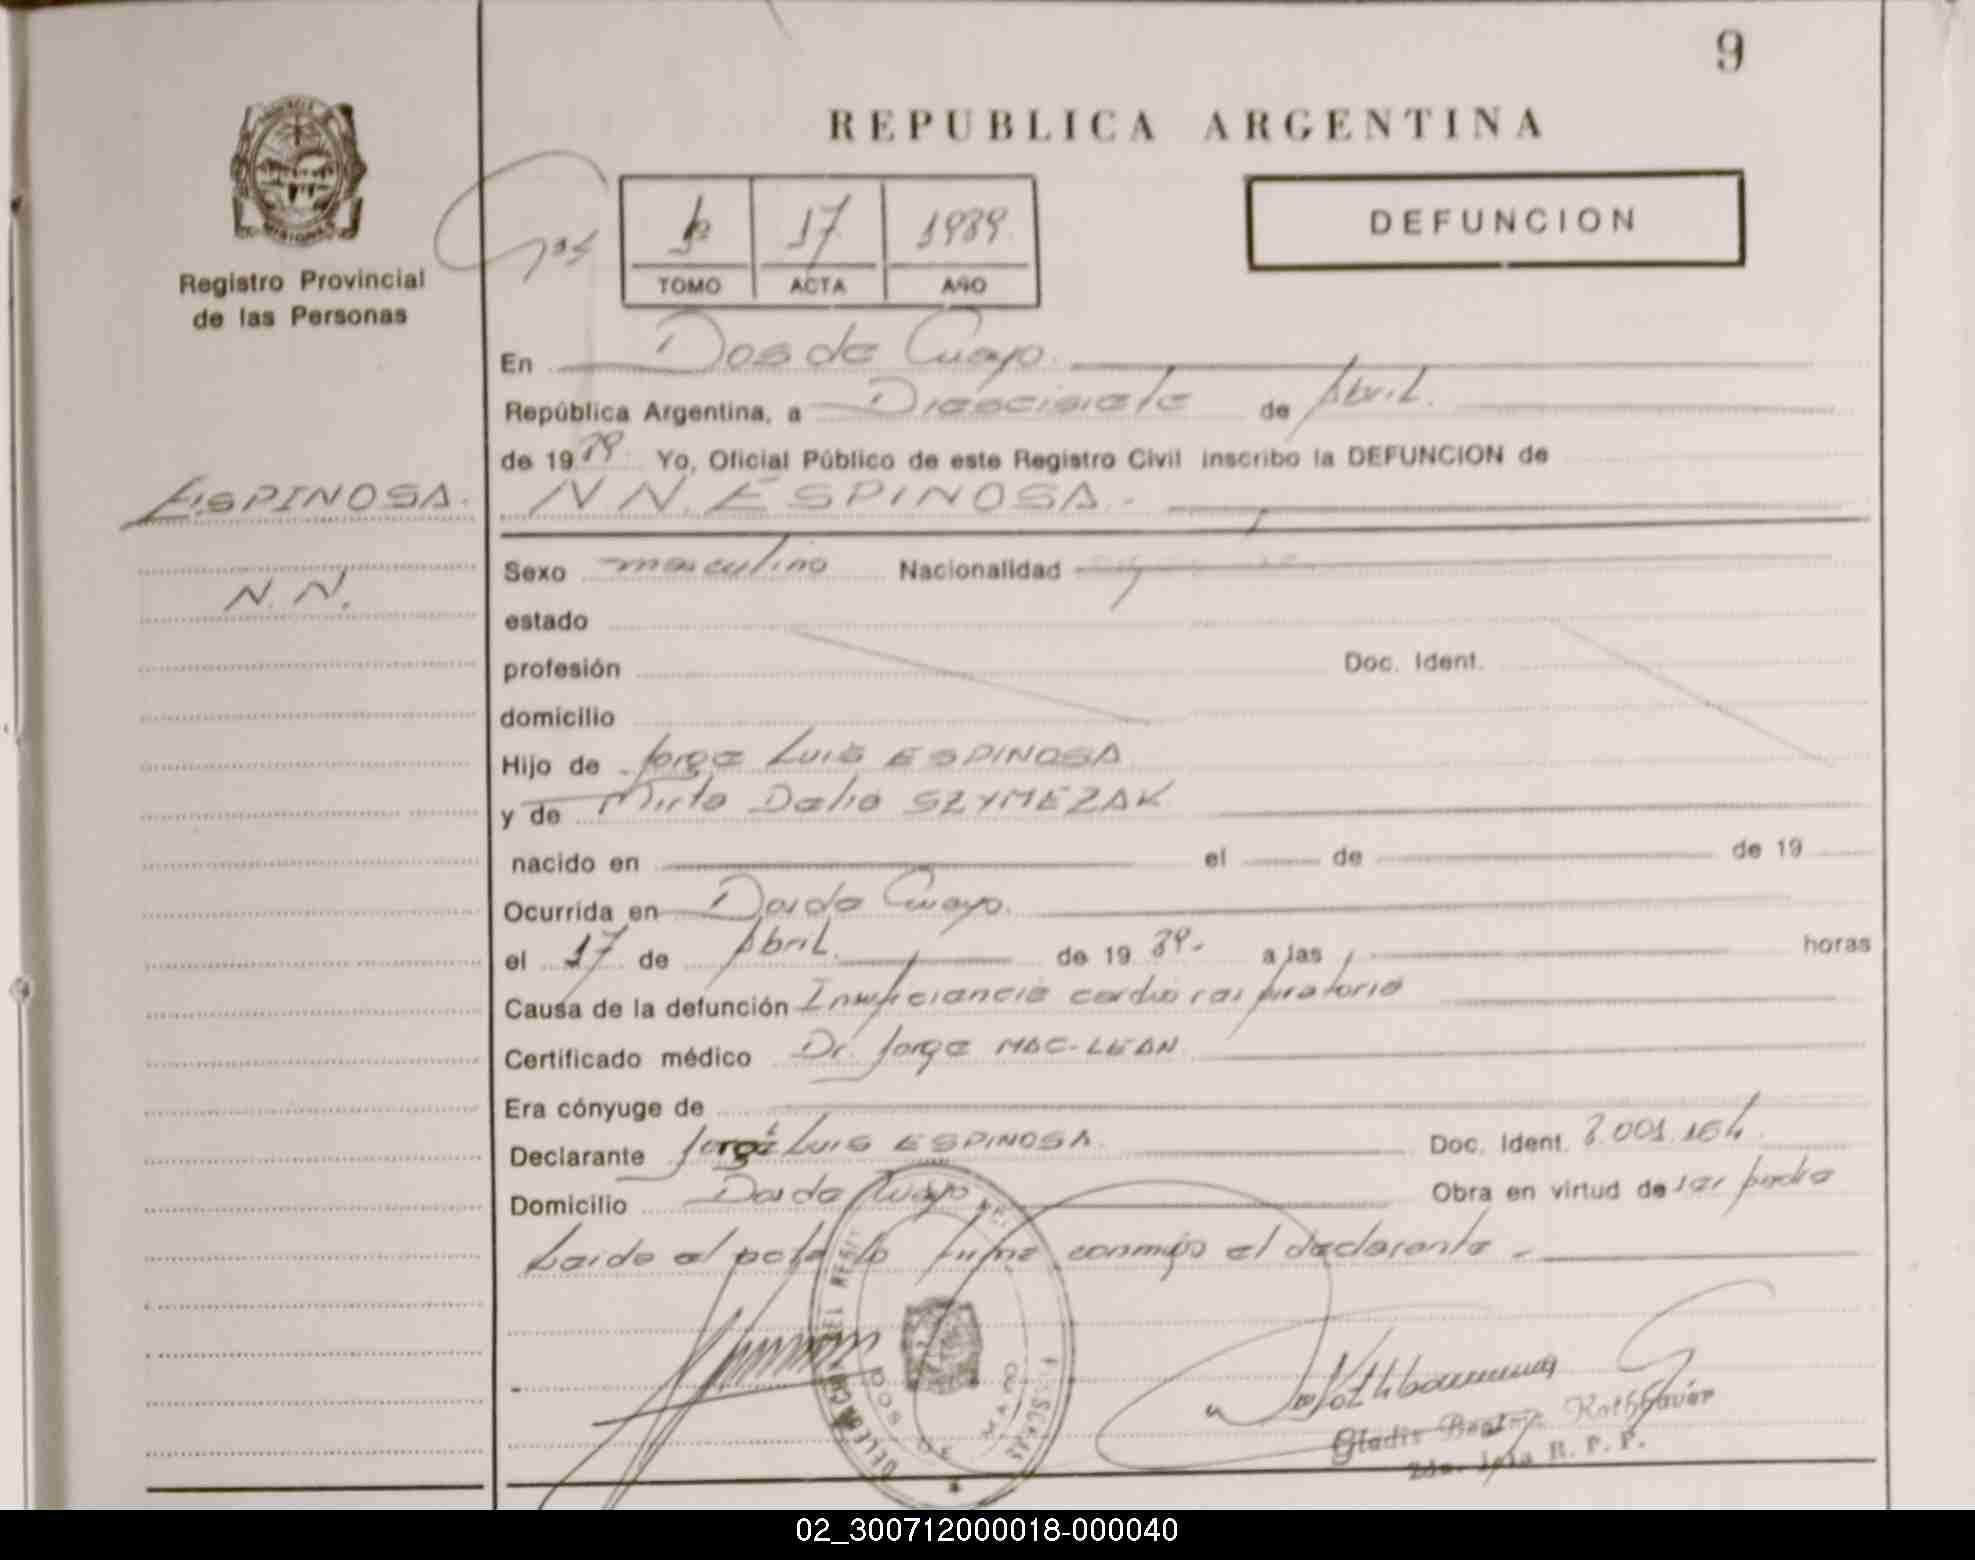 9
REPUBLICA ARGENTINA
DEFUNCION
1º 17 1989
TOMO ACTA AÑO
Registro Provincial
de las Personas
En Dos de Mayo.
República Argentina, a Diecisiete de Abril.
de 1989 Yo, Oficial Público de este Registro Civil inscribo la DEFUNCION de
ESPINOSA. N N. ESPINOSA.-
N. N.
Sexo masculino Nacionalidad
estado
profesión Doc. Ident.
domicilio
Hijo de Jorge Luis ESPINOSA
y de Mirta Delia SZYMEZAK
nacido en el de de 19
Ocurrida en Dos de Mayo.
el 17 de Abril. de 1989. a las horas
Causa de la defunción Insuficiencia cardio respiratoria
Certificado médico Dr. Jorge MAC-LEAN
Era cónyuge de
Declarante Jorge Luis ESPINOSA. Doc. Ident. 8.001.164.
Domicilio Dos de Mayo Obra en virtud de ser padre
Leida el acta la firma conmigo el declarante.-
DOS DE MAYO
Gladis Beatriz
2da. Jefa R. P. P.
02_300712000018-000040